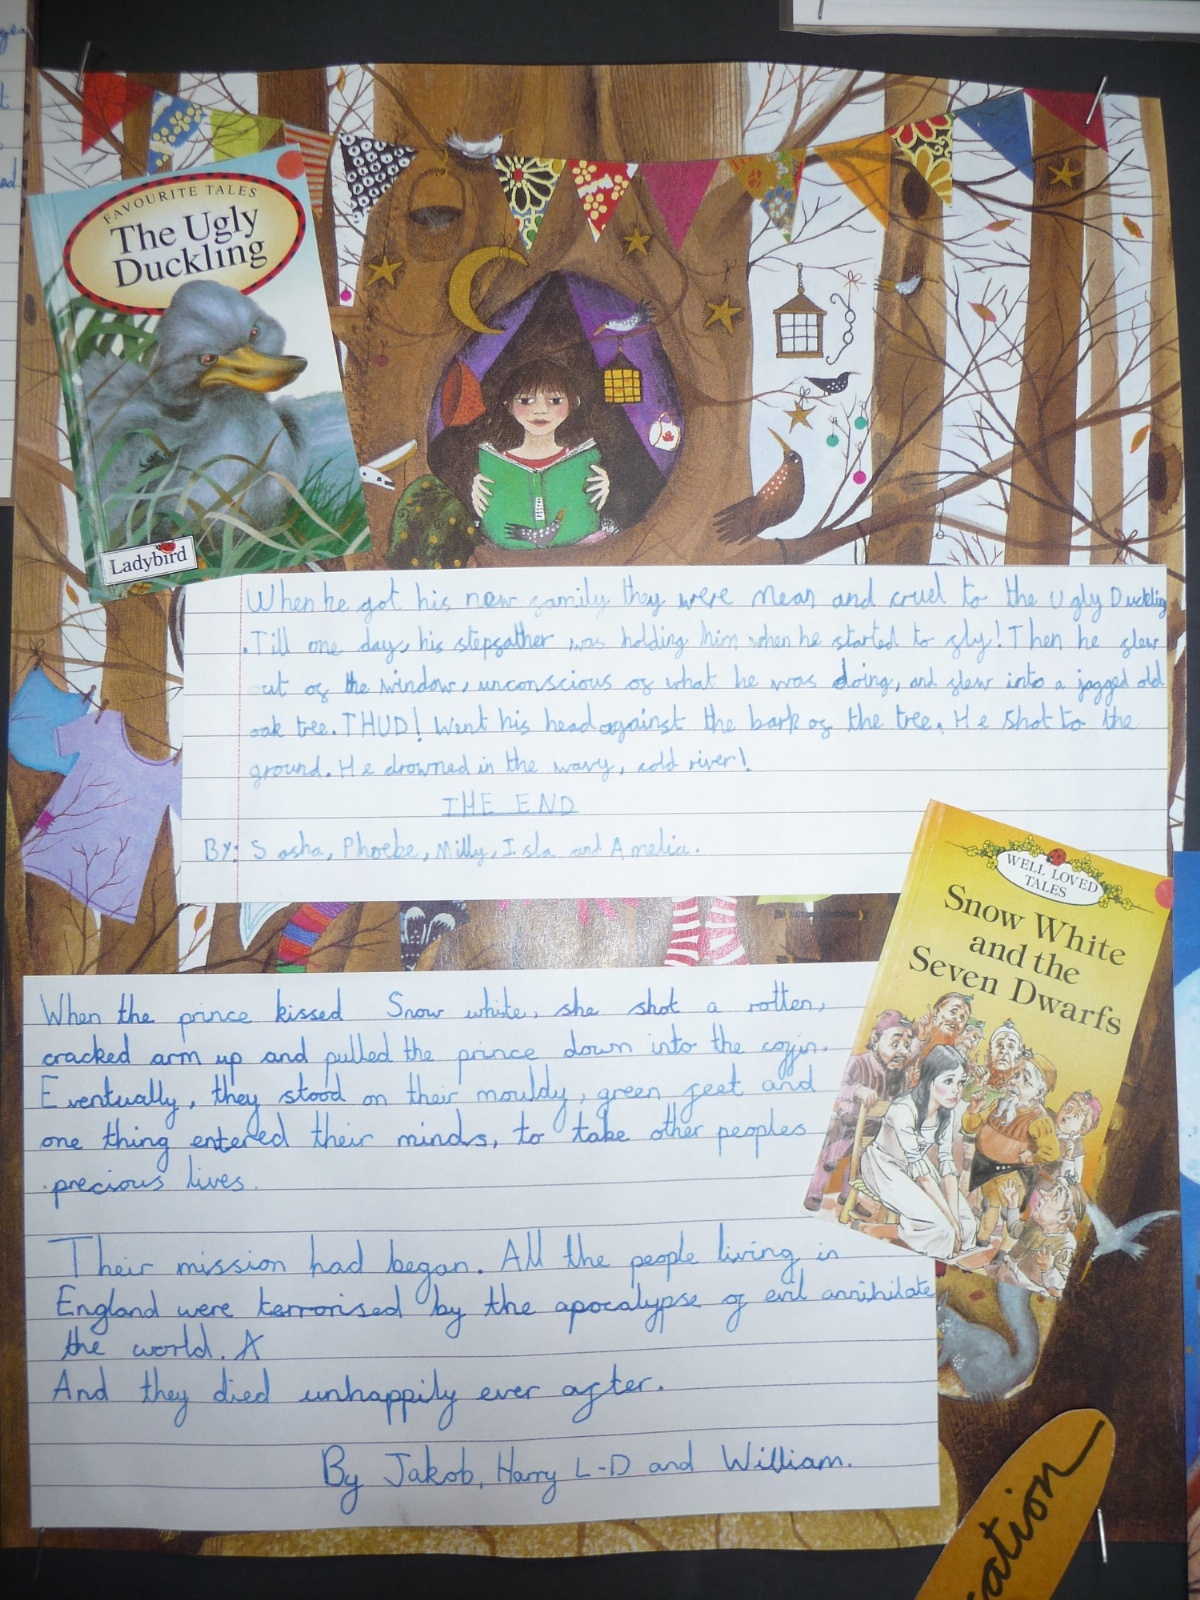 FAVOURITE TALES
The Ugly
Duckling
Ladybird
When he got his new family they were mean and cruel to the Ugly Duckling
.Till one day, his stepfather was holding him when he started to fly! Then he flew
out of the window, unconscious of what he was doing, and flew into a jagged old
oak tree. THUD! Went his head against the bark of the tree. He shot to the
ground. He drowned in the wavy, cold river!
THE END
By: Sasha, Phoebe, Milly, Isla and Amelia.
WELL LOVED
TALES
Snow White
and the
Seven Dwarfs
When the prince kissed Snow white, she shot a rotten,
cracked arm up and pulled the prince down into the coffin.
Eventually, they stood on their mouldy, green feet and
one thing entered their minds, to take other peoples
precious lives.
Their mission had began. All the people living in
England were terrorised by the apocalypse of evil annihilate
the world. A
And they died unhappily ever after.
By Jakob, Harry L-D and William.
cation